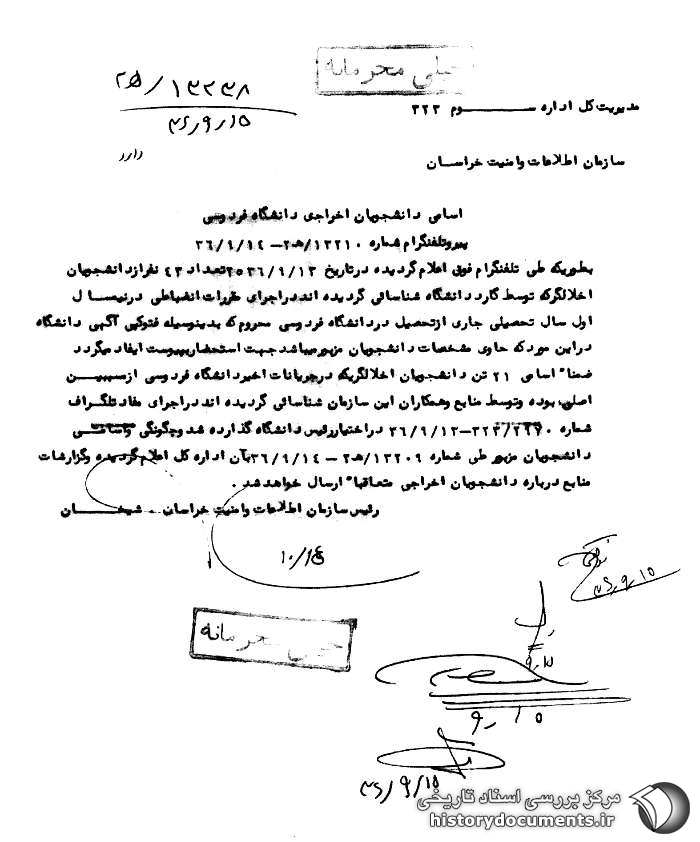 خیلی محرمانه
۲۵/۱۳۲۳۸
۳۶/۹/۱۵
دارد
مدیریت کل اداره سوم ۳۲۳
سازمان اطلاعات وامنیت خراسان
اسامی دانشجویان اخراجی دانشگاه فردوسی
پیرو تلفنگرام شماره ۱۳۲۱۰/ﻫ۲ – ۳۶/۹/۱۴
بطوریکه طی تلفنگرام فوق اعلام گردیده درتاریخ ۲۵۳۶/۹/۱۳ تعداد ۴۳ نفرازدانشجویان
اخلالگرکه توسط گارد دانشگاه شناسائی گردیده اند دراجرای مقررات انضباطی درنیمسال
اول سال تحصیلی جاری ازتحصیل در دانشگاه فردوسی محروم که بدینوسیله فتوکپی آگهی دانشگاه
دراین مورد که حاوی مشخصات دانشجویان مزبور میباشد جهت استحضار بپیوست ایفاد میگردد
ضمناً اسامی ۲۱ تن دانشجویان اخلالگریکه درجریانات اخیر دانشگاه فردوسی ازمسببین
اصلی بوده وتوسط منابع وهمکاران این سازمان شناسائی گردیده اند دراجرای مفاد تلگراف
شماره ۳۲۳/۲۶۶۰–۳۶/۹/۱۲ دراختیار رئیس دانشگاه گذارده شد وچگونگی واسامی
دانشجویان مزبور طی شماره ۱۳۲۰۹/ﻫ۲ – ۳۶/۹/۱۴ بآن اداره کل اعلام گردیده وگزارشات
منابع درباره دانشجویان اخراجی متعاقباً ارسال خواهد شد .
رئیس سازمان اطلاعات وامنیت خراسان . شیخان
۳۶/۹/۱۵
۹/۱۵
خیلی محرمانه
۹/۱۵
۳۶/۹/۱۵
مرکز بررسی اسناد تاریخی
historydocuments.ir